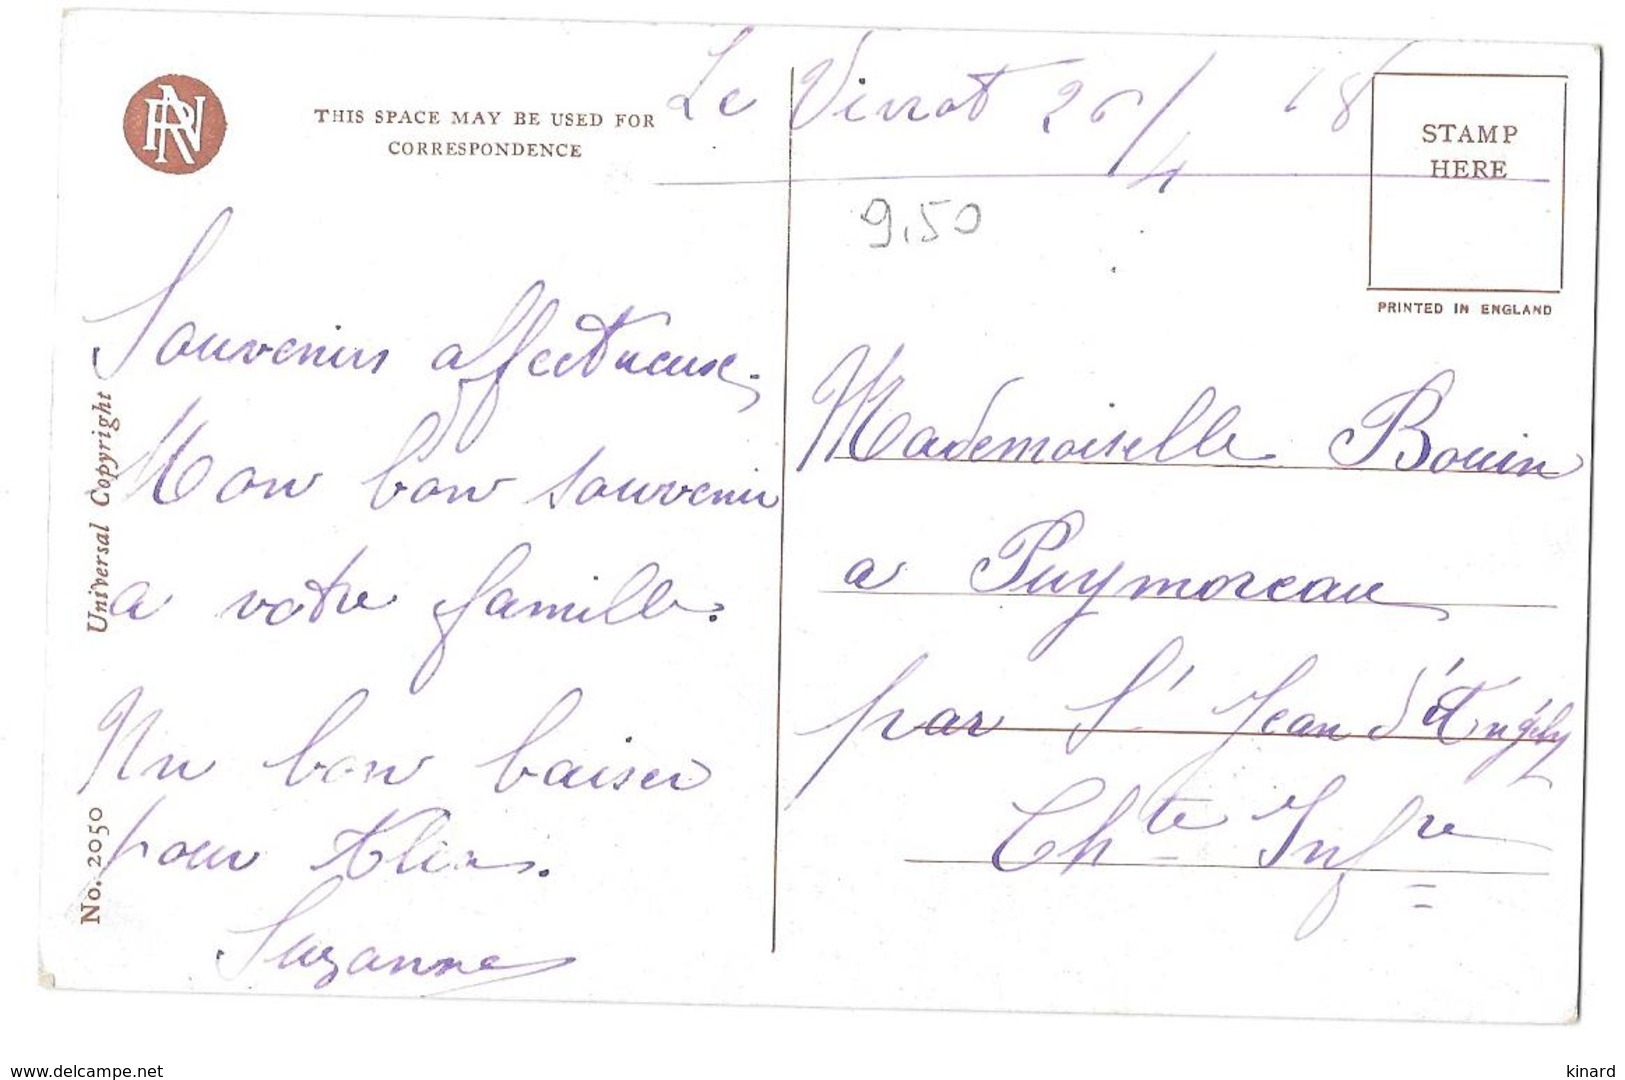 RN
THIS SPACE MAY BE USED FOR
CORRESPONDENCE
Le 26/4 18
STAMP
HERE
9,50
PRINTED IN ENGLAND
Souvenirs affectueuse
Mon bon souvenir
a votre famille.
Un bon baiser
pour
Suzanne
Universal Copyright
No. 2050
Mademoiselle Bouin
a Puymoreau
par St Jean d'Angély
Chte Infre
www.delcampe.net
kinard